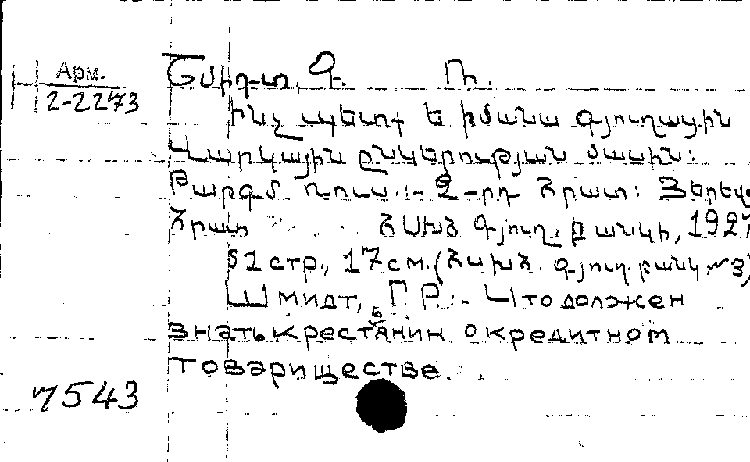 Арм.
2-2273
Շմիդտ, Գ. Ռ.
Ինչ պետք է իմանա գյուղացին
վարկային ընկերության մասին:
Թարգմ. ռուս.:- 2-րդ հրատ: Յերեվ
Հրատ ՀՍԽՀ գյուղ. բանկի, 1927
52 стр., 17 см. (ՀՍԽՀ. գյուղ բանկ №3)
Шмидт, Г. Р.:- Что должен
знать крестьянин о кредитном
товариществе.
7543